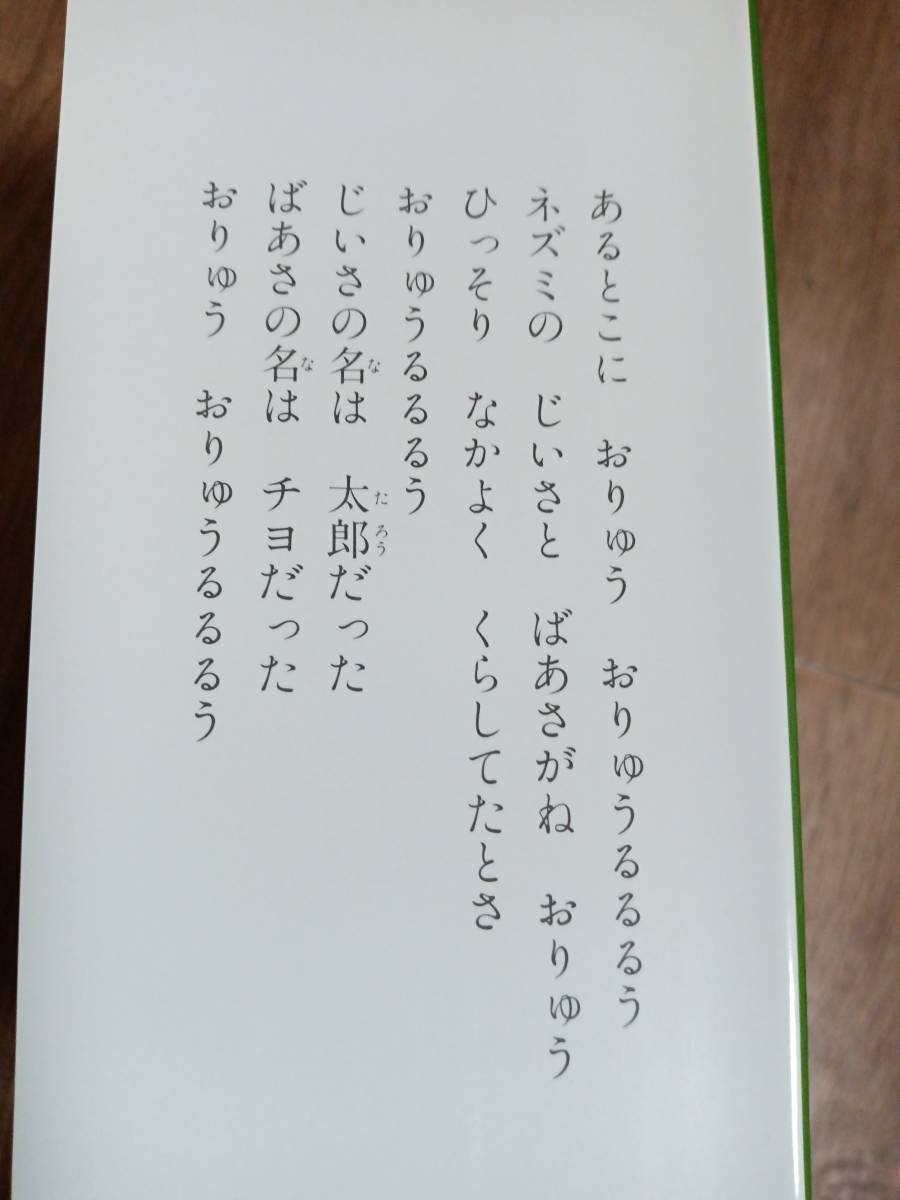 あるとこに　おりゅう　おりゅうるるるう
ネズミの　じいさと　ばあさがね　おりゅう
ひっそり　なかよく　くらしてたとさ
おりゅうるるるう
じいさの名は　太郎だった
ばあさの名は　チヨだった
おりゅう　おりゅうるるるう